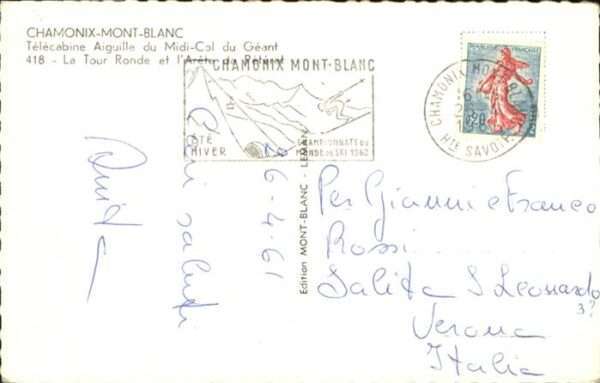 CHAMONIX-MONT-BLANC
Télécabine Aiguille du Midi-Col du Géant
418 - La Tour Ronde et l'Arête du
CHAMONIX MONT-BLANC
ÉTÉ
HIVER
CHAMPIONNATS DU
MONDE DE SKI 1962
CHAMONIX MONT-BLANC
HTE SAVOIE
0,20
Cari saluti
26.4.61
Edition MONT-BLANC - LEMAN
Per Gianni e Franco
Rossi
Salita S. Leonardo
3?
Verona
Italia